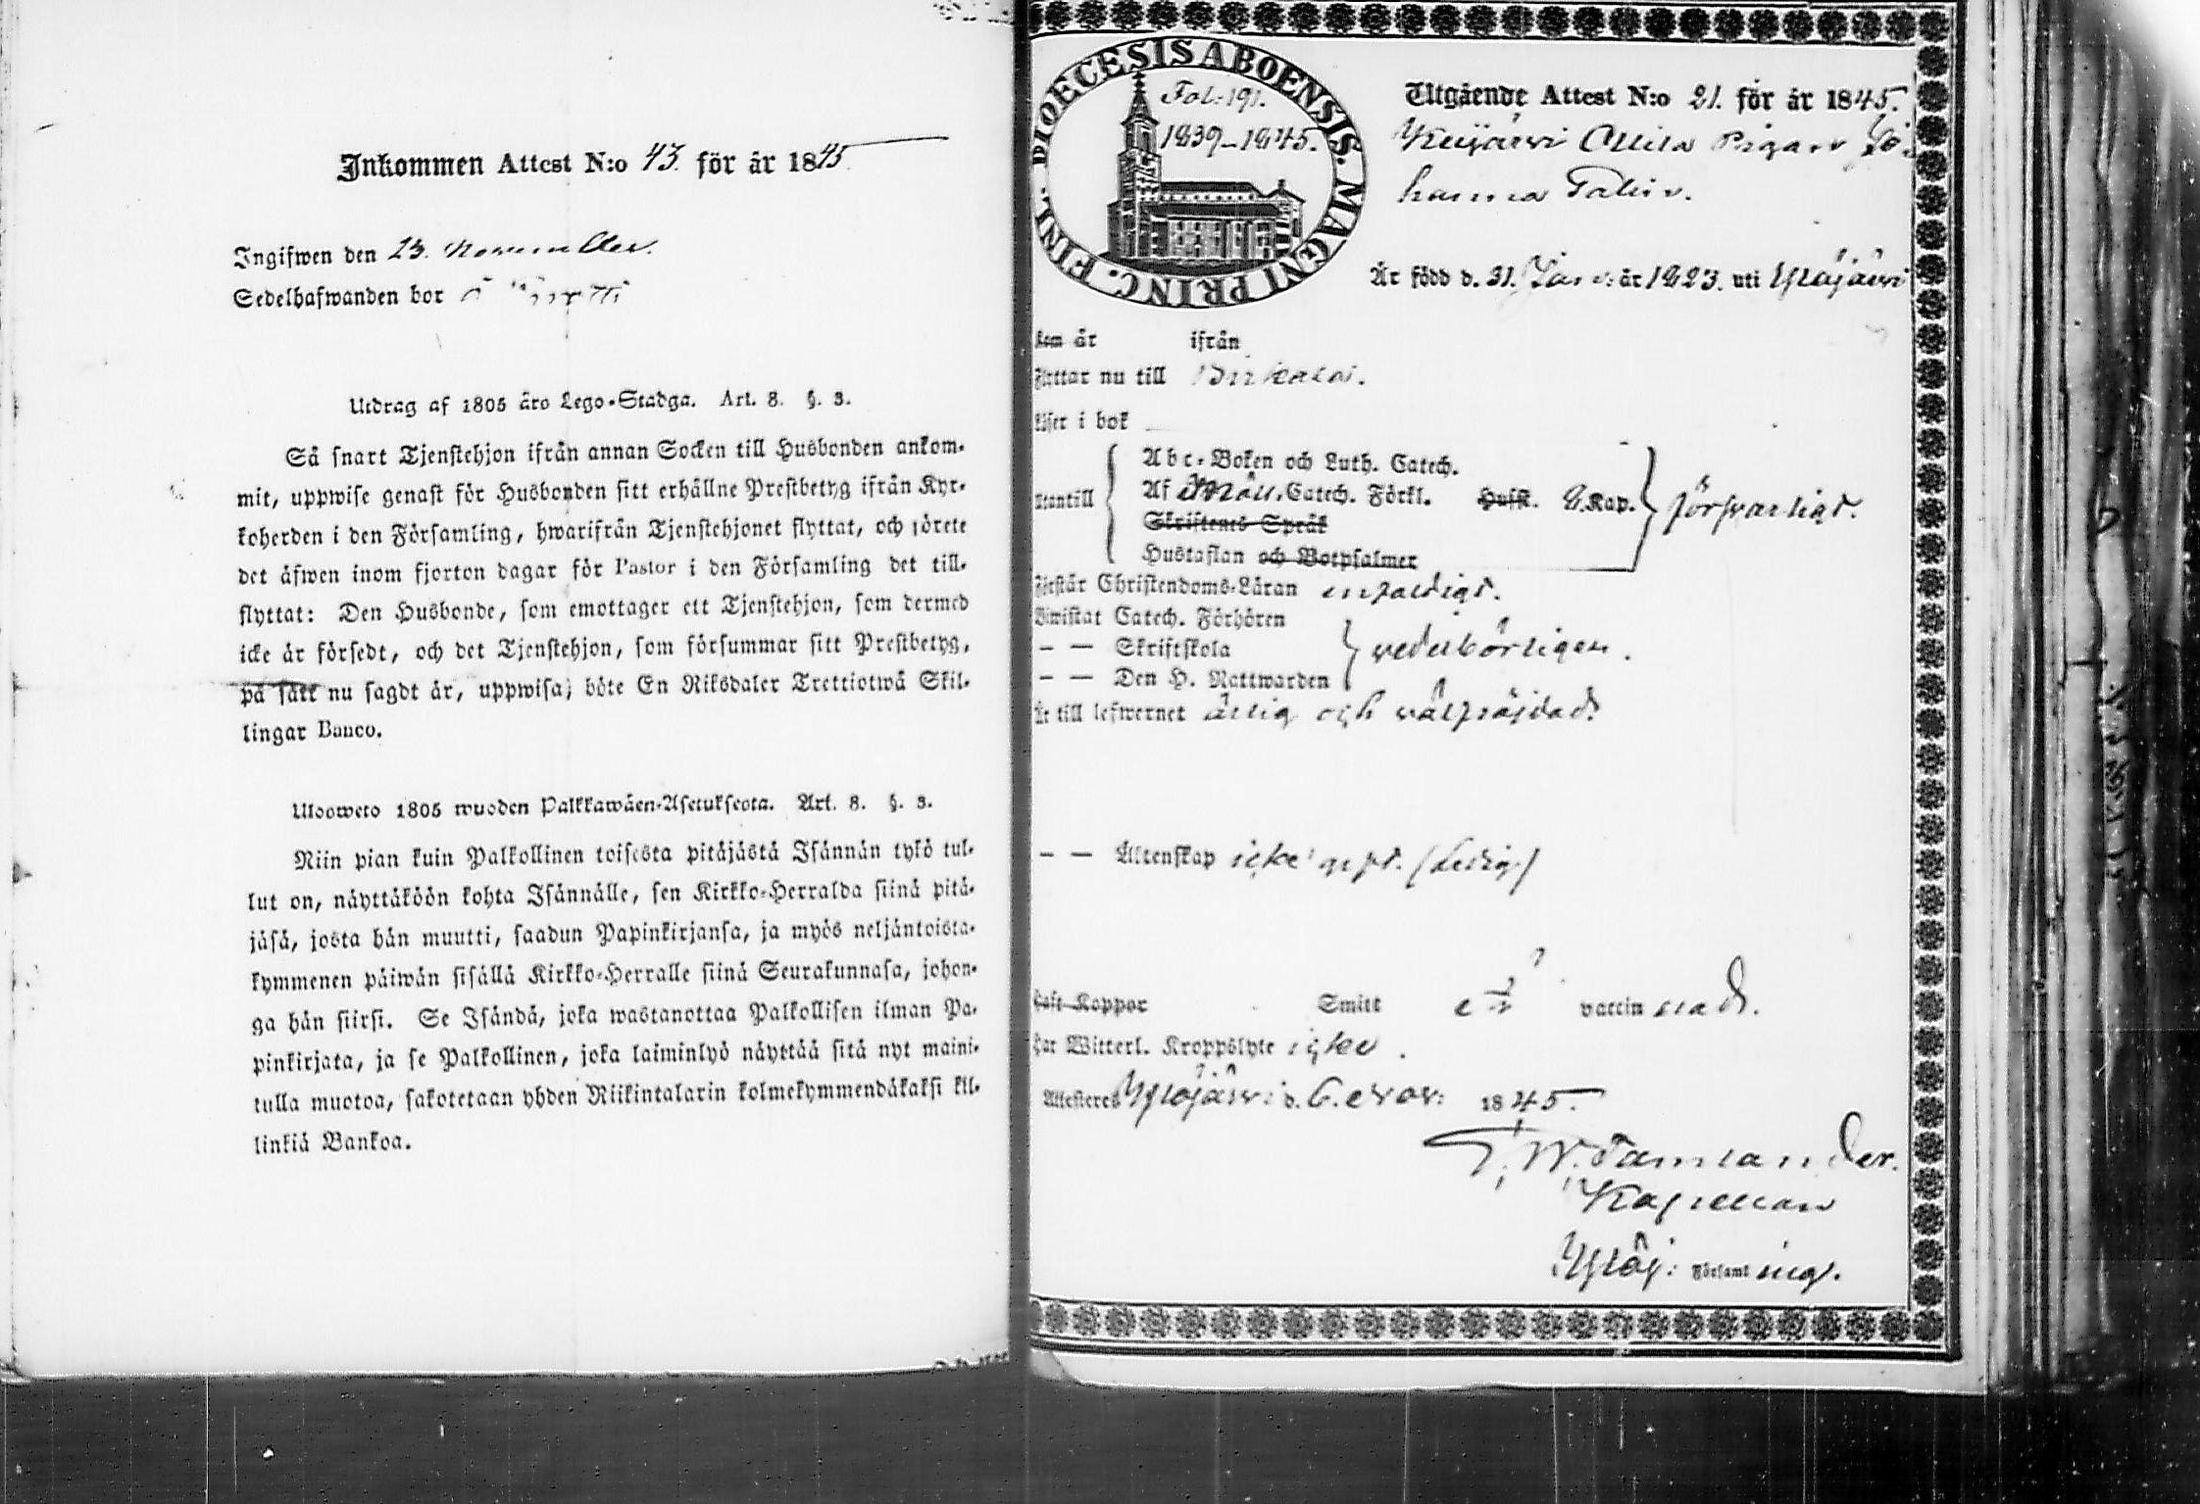 Inkommen Attest N:o 43. för år 1845.
Ingifwen den 23. November.
Sedelhafwanden bor å
Utdrag af 1805 åro Lego-Stadga. Art. 8. §. 3.
Så snart Tjenstehjon ifrån annan Socken till Husbonden ankom-
mit, uppwise genast för Husbonden sitt erhållne Prestbetyg ifrån Kyr-
koherden i den Församling, hwarifrån Tjenstehjonet flyttat, och förete
det äfwen inom fjorton dagar för Pastor i den Församling det till-
flyttat: Den Husbonde, som emottager ett Tjenstehjon, som dermed
icke är försedt, och det Tjenstehjon, som försummar sitt Prestbetyg,
på sätt nu sagdt är, uppwisa; böte En Riksdaler Trettiotwå Skil-
lingar Banco.
Uloosweto 1805 wuoden Palkkawäen-Asetuksesta. Art. 8. §. 3.
Niin pian kuin Palkollinen toisesta pitäjästä Isännän tykö tul-
lut on, näyttäköön kohta Isännälle, sen Kirkko-Herralda siinä pitä-
jäsä, josta hän muutti, saadun Papinkirjansa, ja myös neljäntoista-
kymmenen päiwän sisällä Kirkko-Herralle siinä Seurakunnasa, johon-
ga hän siirsi. Se Isändä, joka wastanottaa Palkollisen ilman Pa-
pinkirjata, ja se Palkollinen, joka laiminlyö näyttää sitä nyt maini-
tulla muotoa, sakotetaan yhden Riikintalarin kolmekymmendäkaksi kil-
linkiä Bankoa.
DIOECESIS ABOENSIS. MAGNI PRINC. FINL.
Fol: 191.
1839-1845.
Utgående Attest N:o 21. för år 1845.
Pigan Jo-
hanna
Är född d. 31. Jan: år 1823. uti Ylöjärvi
Kom år ifrån
Flyttar nu till Birkala.
Läser i bok
Utantill
Abc-Boken och Luth. Catech.
Af Möll. Catech. Förkl. Hufst. 8. Kap. försvarligt.
Skriftenes Språk
Hustaflan och Botpsalmer
Förstår Christendoms-Läran enfaldigt.
Biwistat Catech. Förhören
– – Skriftskola vederbörligen.
– – Den H. Nattwarden
Är till lefwernet ärlig och välfräjdad.
– – Äktenskap icke gift. (Ledig)
Haft Koppor Smitt vaccinerad.
Har Witterl. Kroppslyte icke.
Attesteres Ylöjärvi d. 6. Nov: 1845.
W. Tamlander.
Kapellan
Ylöj: Församling.